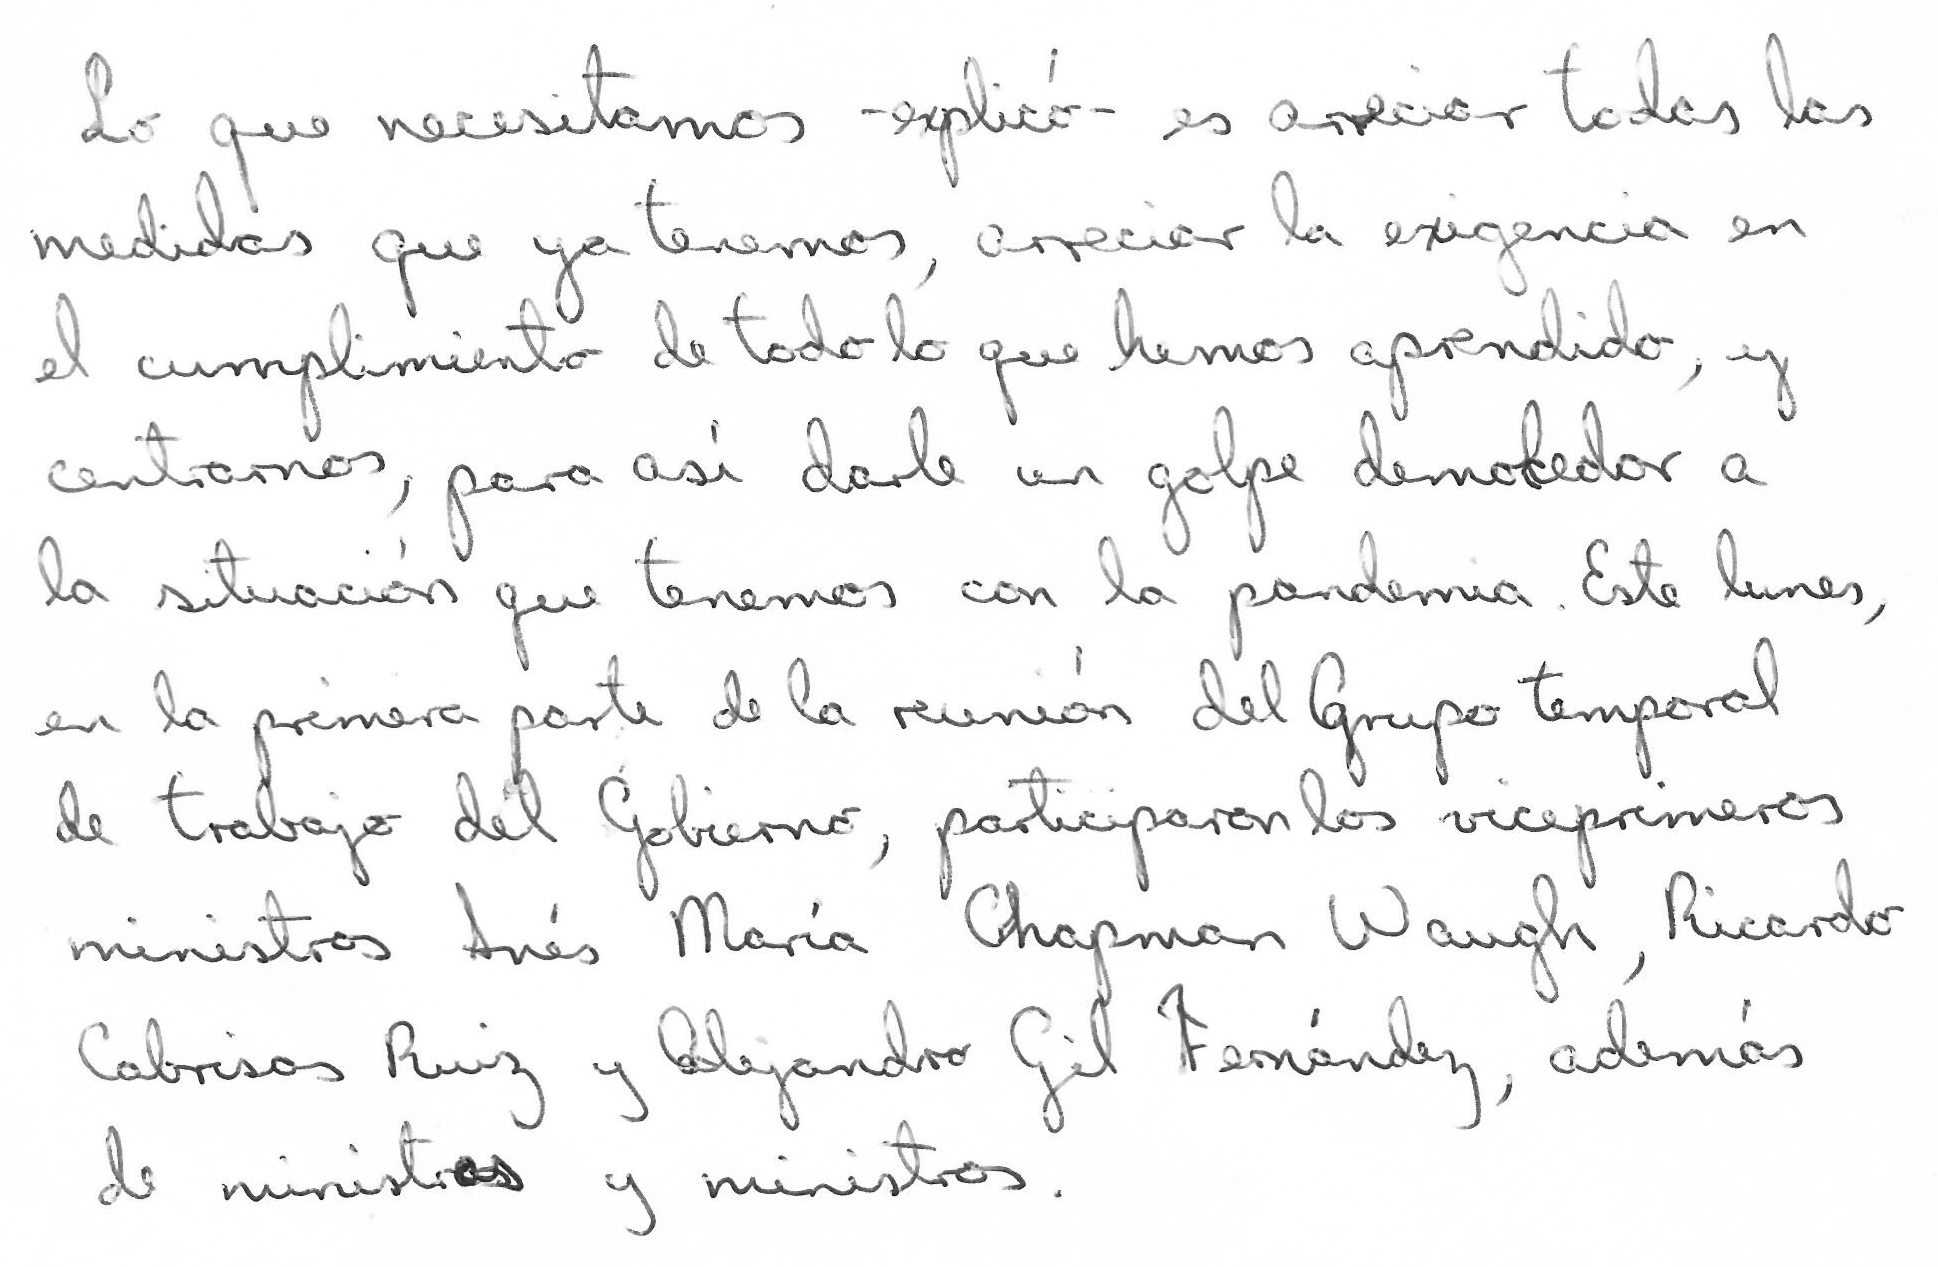 Lo que necesitamos -explicó- es arreciar todas las
medidas que ya tenemos, arreciar la exigencia en
el cumplimiento de todo lo que hemos aprendido, y
centrarnos, para así darle un golpe demoledor a
la situación que tenemos con la pandemia. Este lunes,
en la primera parte de la reunión del Grupo temporal
de trabajo del Gobierno, participaron los viceprimeros
ministros Inés María Chapman Waugh, Ricardo
Cabrisas Ruiz y Alejandro Gil Fernández, además
de ministras y ministros.